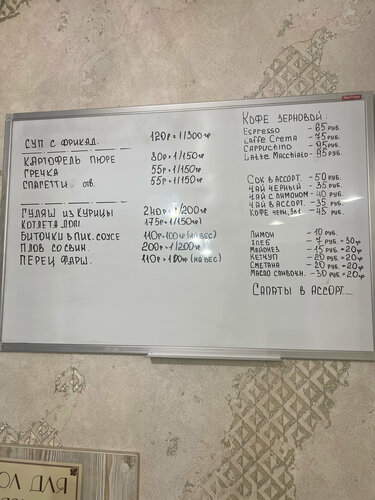 СУП С ФРИКАД. 120р = 1/300 гр
КАРТОФЕЛЬ ПЮРЕ 80р = 1/150 гр
ГРЕЧКА 55р = 1/150 гр
СПАГЕТТИ отв. 55р = 1/150 гр
ГУЛЯШ ИЗ КУРИЦЫ 240р = 1/200 гр
КОТЛЕТА ДОМ 175р = 1/150 гр
БИТОЧКИ В ПИК. СОУСЕ 110р - 100 гр (на вес)
ПЛОВ СО СВИН. 200р = 1/200 гр
ПЕРЕЦ ФАРШ. 110р = 100 гр (на вес)
КОФЕ ЗЕРНОВОЙ:
Espresso - 65 руб.
Caffe Crema - 75 руб.
Cappuchino - 95 руб.
Latte Macchiato - 95 руб.
СОК В АССОРТ. - 50 руб.
ЧАЙ ЧЕРНЫЙ - 35 руб.
ЧАЙ С ЛИМОНОМ - 40 руб.
ЧАЙ В АССОРТ. - 35 руб.
КОФЕ ЧЕРН, 3в1 - 45 руб.
ЛИМОН - 10 руб.
ХЛЕБ - 7 руб. = 30гр
МАЙОНЕЗ - 15 руб. = 20гр
КЕТЧУП - 20 руб = 20гр
СМЕТАНА - 20 руб. = 20гр
МАСЛО СЛИВОЧН. - 30 руб = 20гр
САЛАТЫ В АССОРТ....
ОЛ ДЛЯ